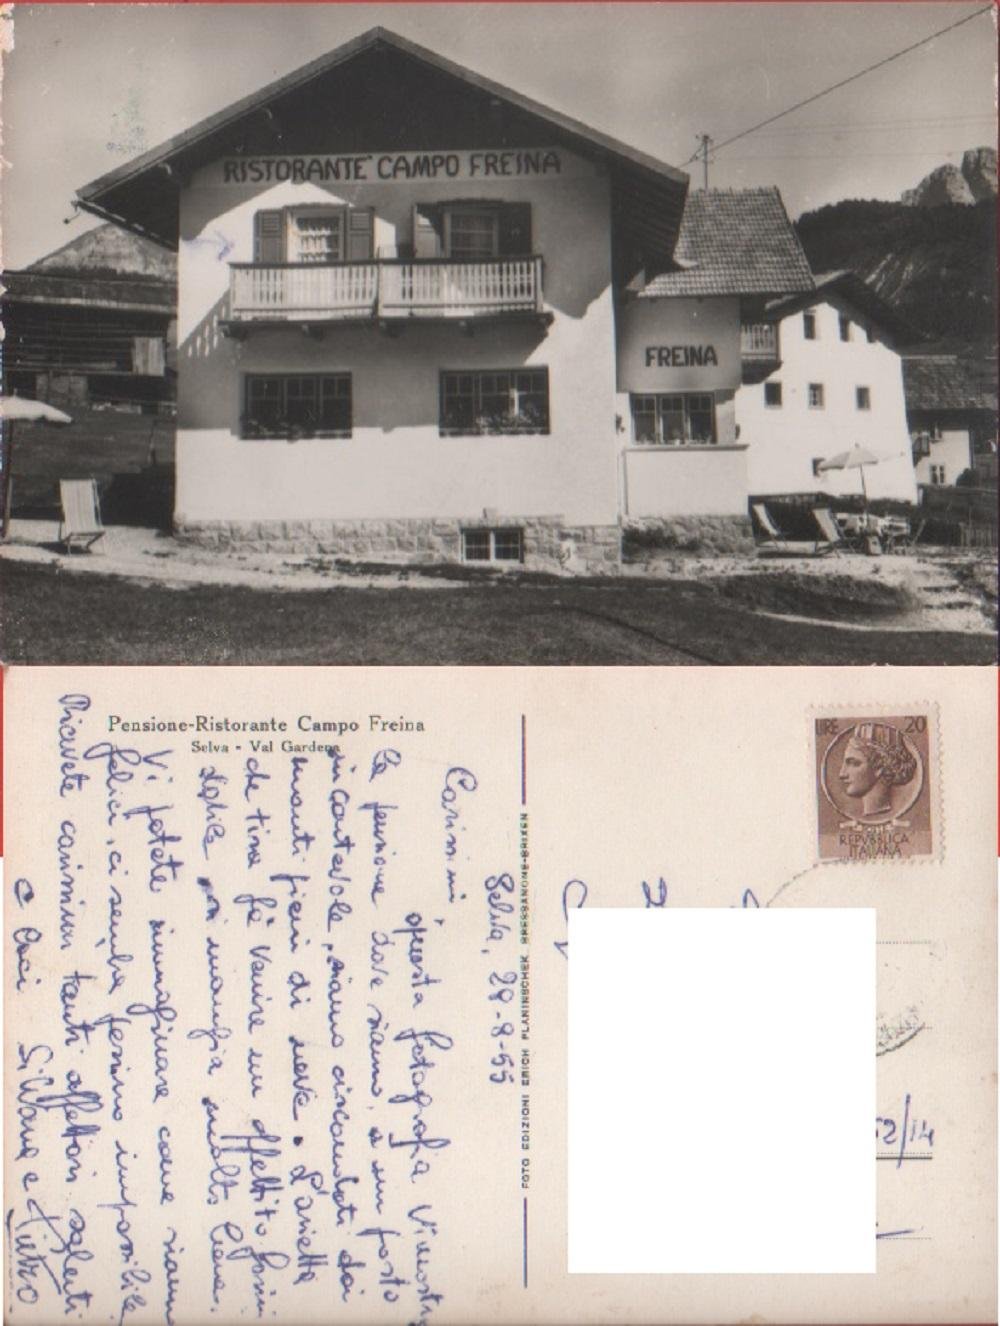 RISTORANTE CAMPO FREINA
FREINA
Pensione-Ristorante Campo Freina
Selva - Val Gardena
LIRE 20
REPVBBLICA
ITALIANA
FOTO EDIZIONI ERICH PLANINSCHEK, BRESSANONE-BRIXEN
Selva, 29-8-55
Carissimi,
questa fotografia Vi mostra
la pensione dove siamo, è un posto
incantevole, siamo circondati dai
monti pieni di neve. L'arietta
che tira fà venire un appetito
si mangia molto bene.
Vi potete immaginare come siamo
felici, ci sembra persino impossibile.
Ricevete carissimi tanti affettuosi saluti
e baci Silvana e Pietro
52/14